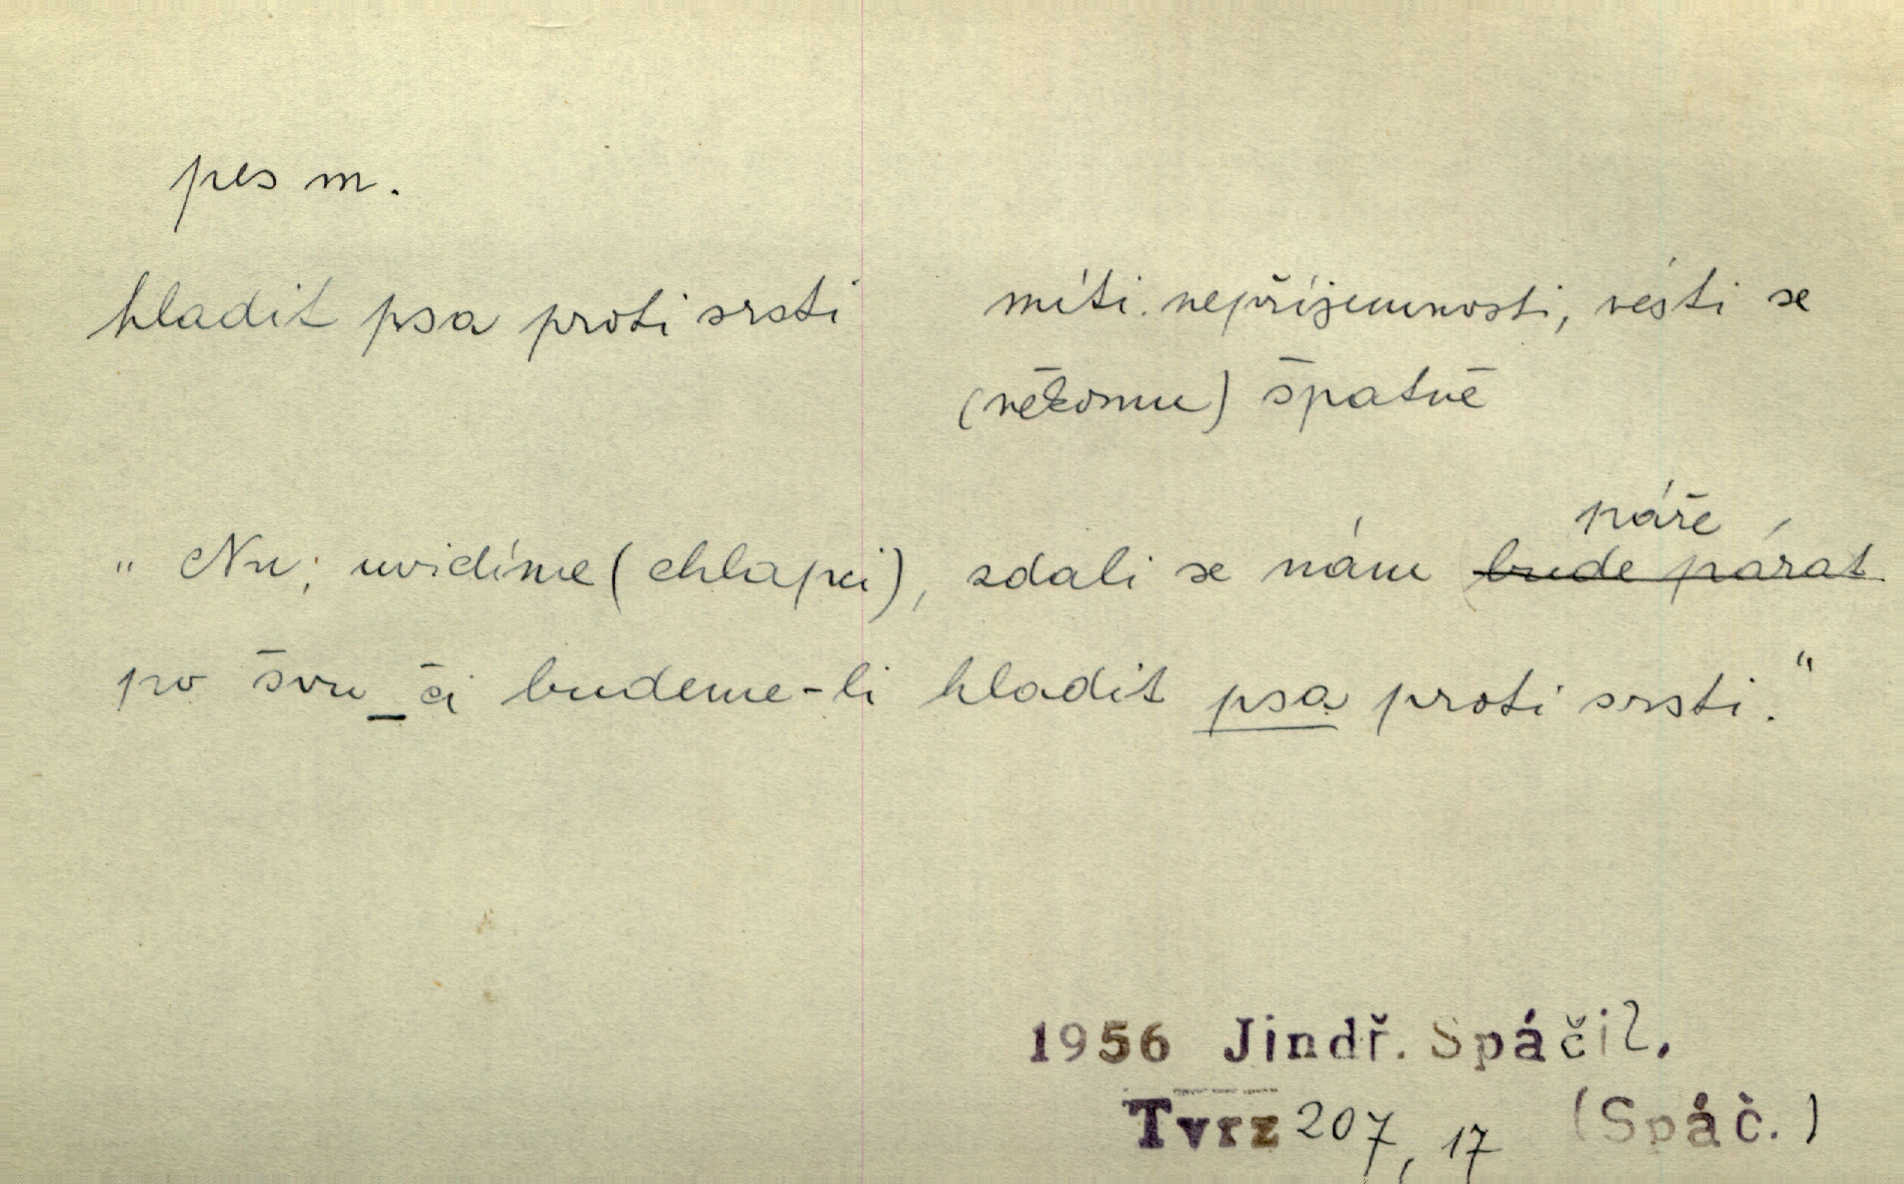 pes m.
hladit psa proti srsti míti nepříjemnosti, vésti se
(někomu) špatně
páře
„Nu, uvidíme (chlapci), zdali se nám bude párat
po švu_či budeme-li hladit psa proti srsti.“
1956 Jindř. Spáčil,
Tvrz 207, 17 (Spáč.)